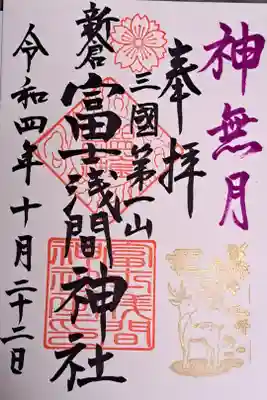 神無月
奉拝
三國第一山
新倉
富士浅間神社
令和四年十月二十二日